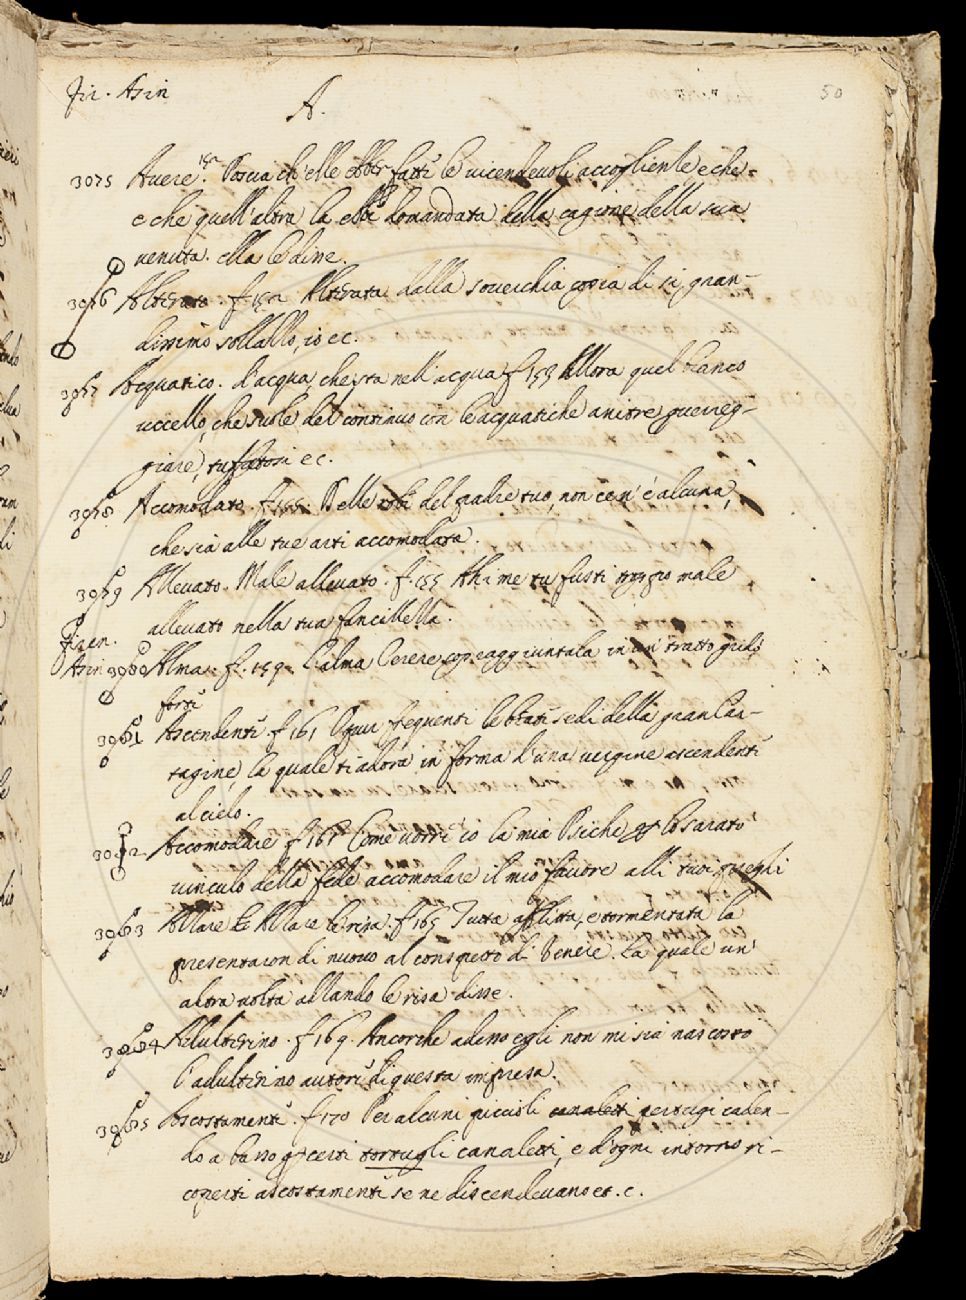 Fir. Asin
A.
50
3075 Avere. 152. Poscia ch'elle ebber fatti le vicendevoli accoglienze e che
e che quell'altra la ebbe domandata della cagione della sua
venuta. ella le disse.
3076 Alterata. f. 152 Alterata dalla soverchia copia di sì gran-
dissimo sollallo, io ec.
3077 Acquatico. d'acqua, che sta nell'acqua f. 153 Allora quel bianco
uccello, che suole del continuo con le acquatiche anitre guerreg-
giare, tuffatosi ec.
3078 Accomodato. f. 155. Delle robe del padre tuo, non ce n'è alcuna,
che sia alle tue arti accomodata.
3079 Allevato. Male allevato. f. 155 Ahi me tu fusti troppo male
allevato nella tua fancillella.
Firen.
Asin 3080 Alma. f. 159. L'alma Cerere sopraggiuntala in un tratto gridò
forte
3081 Ascendente f. 161 O pur frequenti le beate sedi della gran Car-
tagine, la quale ti adora in forma d'una vergine ascendente
al cielo.
3082 Accomodare f. 161 Come vorrò io la mia Psiche
vinculo della fede accomodare il mio favore alli tuoi prieghi
3083 Alzare Alzare le risa. f. 165 Tutta afflitta, e tormentata la
presentaron di nuovo al conspetto di Venere. La quale un'
altra volta alzando le risa disse.
3084 Adulterino. f. 169. Ancorchè adesso egli non mi sia nascosto
l'adulterino autore di questa impresa.
3085 Ascostamente. f. 170 Per alcuni piccioli canaletti pertugi caden-
do a basso per certi canaletti, e d'ogni intorno ri-
coperti ascostamente se ne discendevano et. c.